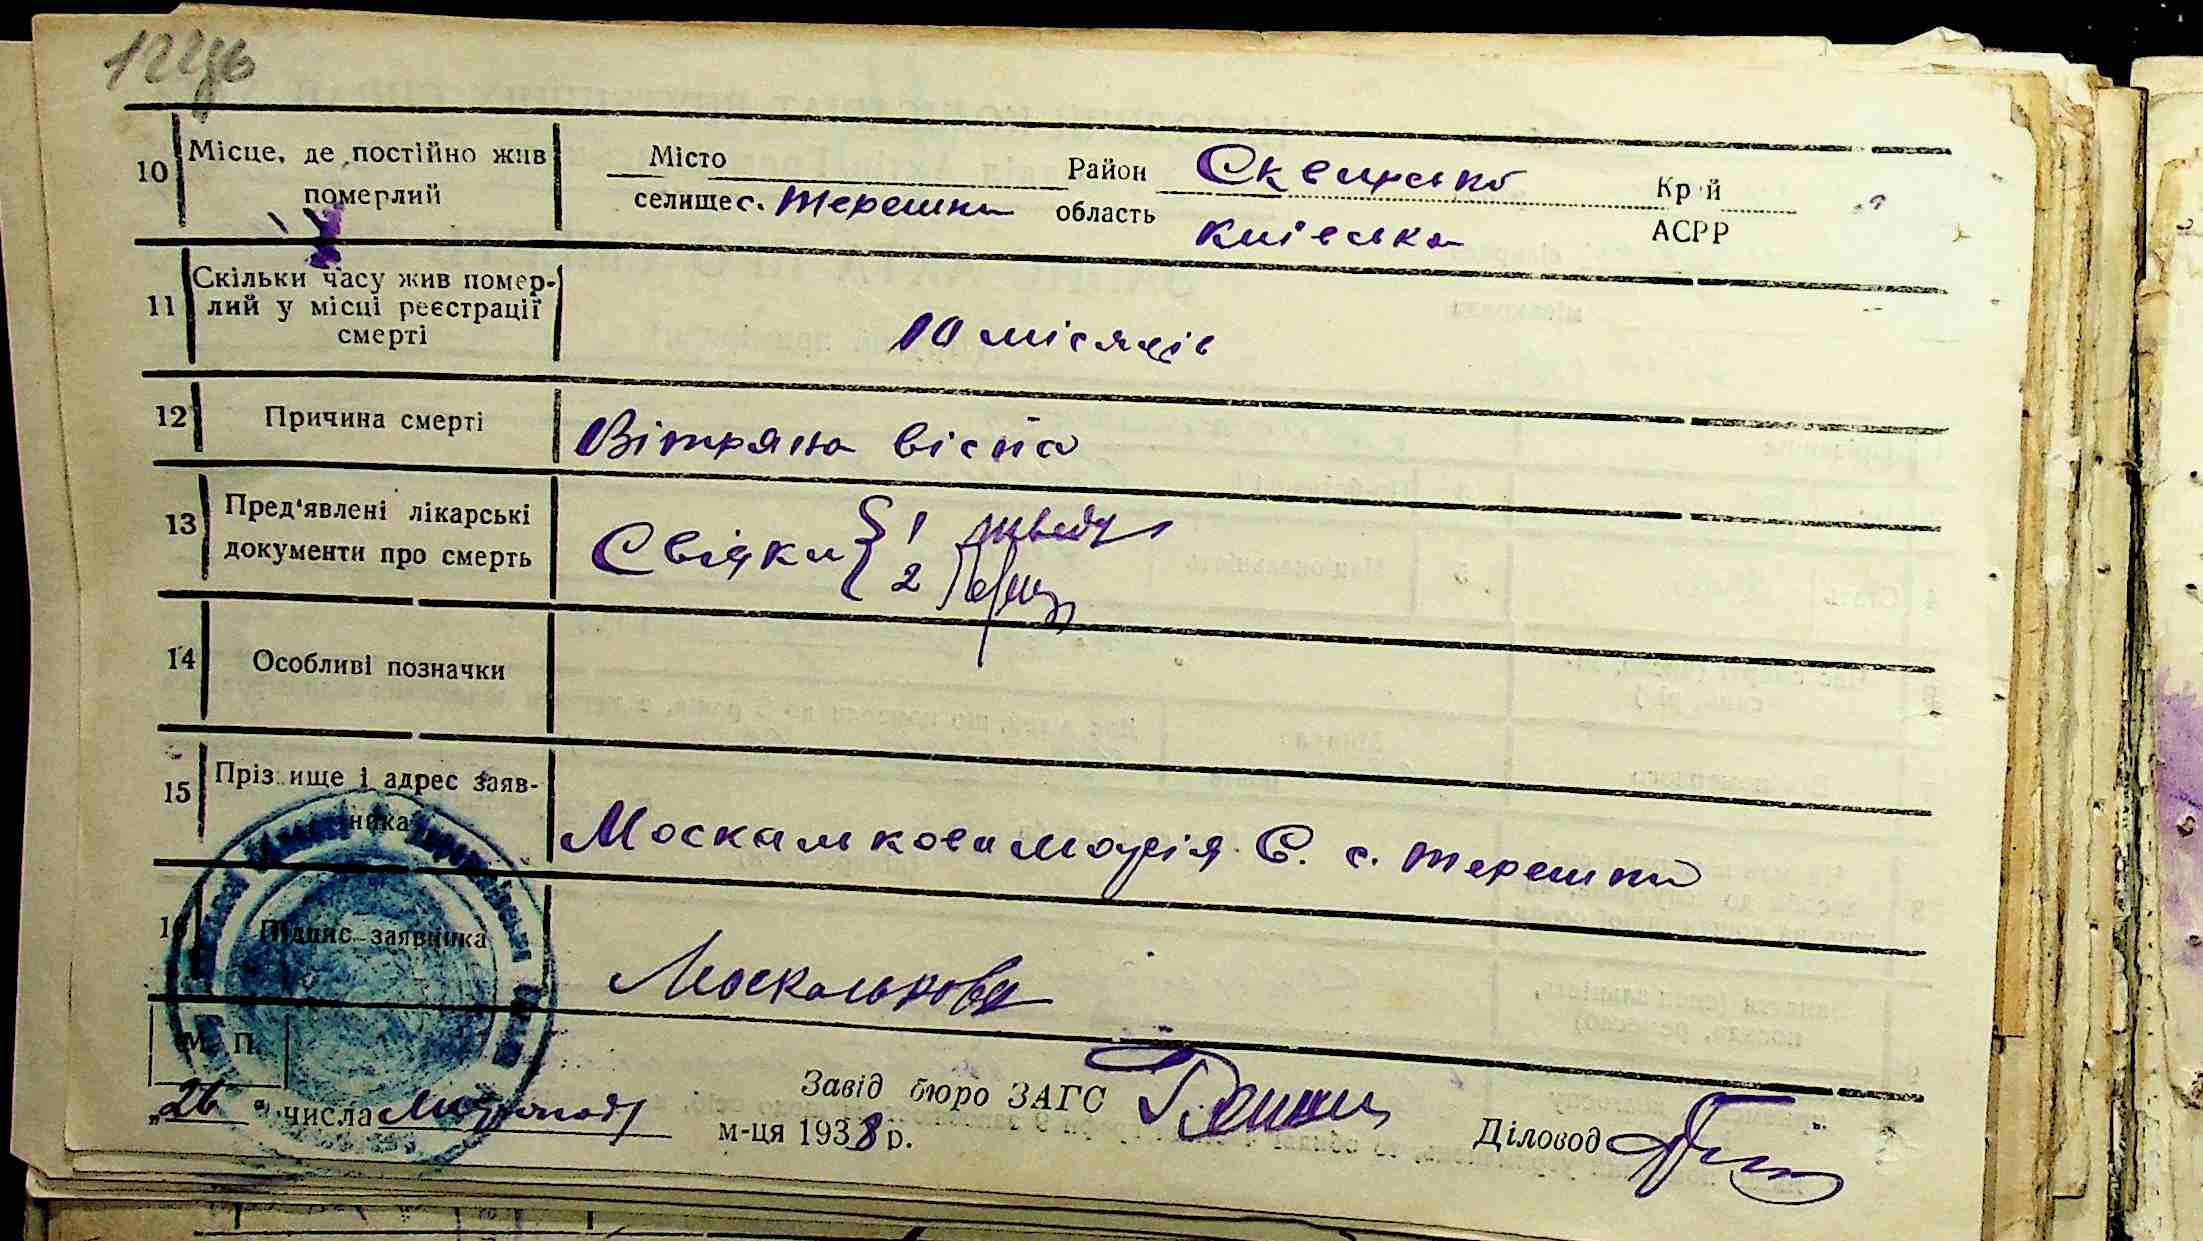 10 Місце, де постійно жив померлий
Місто Район Сквирсько Кр й
селище с. Терешки область Київська АСРР
11 Скільки часу жив помер-
лий у місці реєстрації
смерті
10 місяців
12 Причина смерті Вітряна віспа
13 Пред'явлені лікарські
документи про смерть
Свідки { 1
2
14 Особливі позначки
15 Пріз ище і адрес заяв-
ника
Москалькова Марія Є. с. Терешки
16 Підпис заявника
Москалькова
М. П.
Завід бюро ЗАГС
„26" числа листопаду м-ця 1938 р.
Діловод